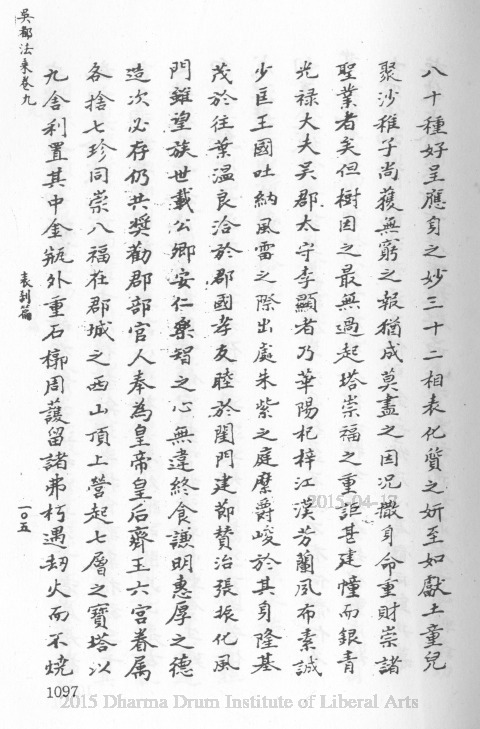 吳都法乘卷九
八十種好呈應身之妙三十二相表化質之妍至如獻土童兒
聚沙稚子尚獲無窮之報猶成莫盡之因況撤身命重財崇諸
聖業者矣但樹因之最無過起塔崇福之重詎甚建幢而銀青
光祿大夫吳郡太守李顯者乃華陽杞梓江漢芳蘭風布素誠
少匡王國吐納風雷之際出處朱紫之庭縻爵峻於其身隆基
茂於往葉溫良洽於郡國孝友睦於閨門建節贊治張振化風
門雖望族世載公卿安仁樂智之心無違終食謙明惠厚之德
造次必存仍共獎勸郡部官人奉為皇帝皇后齊王六宮眷屬
各捨七珍同崇八福在郡城之西山頂上營起七層之寶塔以
九舍利置其中金瓶外重石槨周護留諸弗朽遇劫火而不燒
表剎篇
一〇五
1097
2015-04-17
2015 Dharma Drum Institute of Liberal Arts